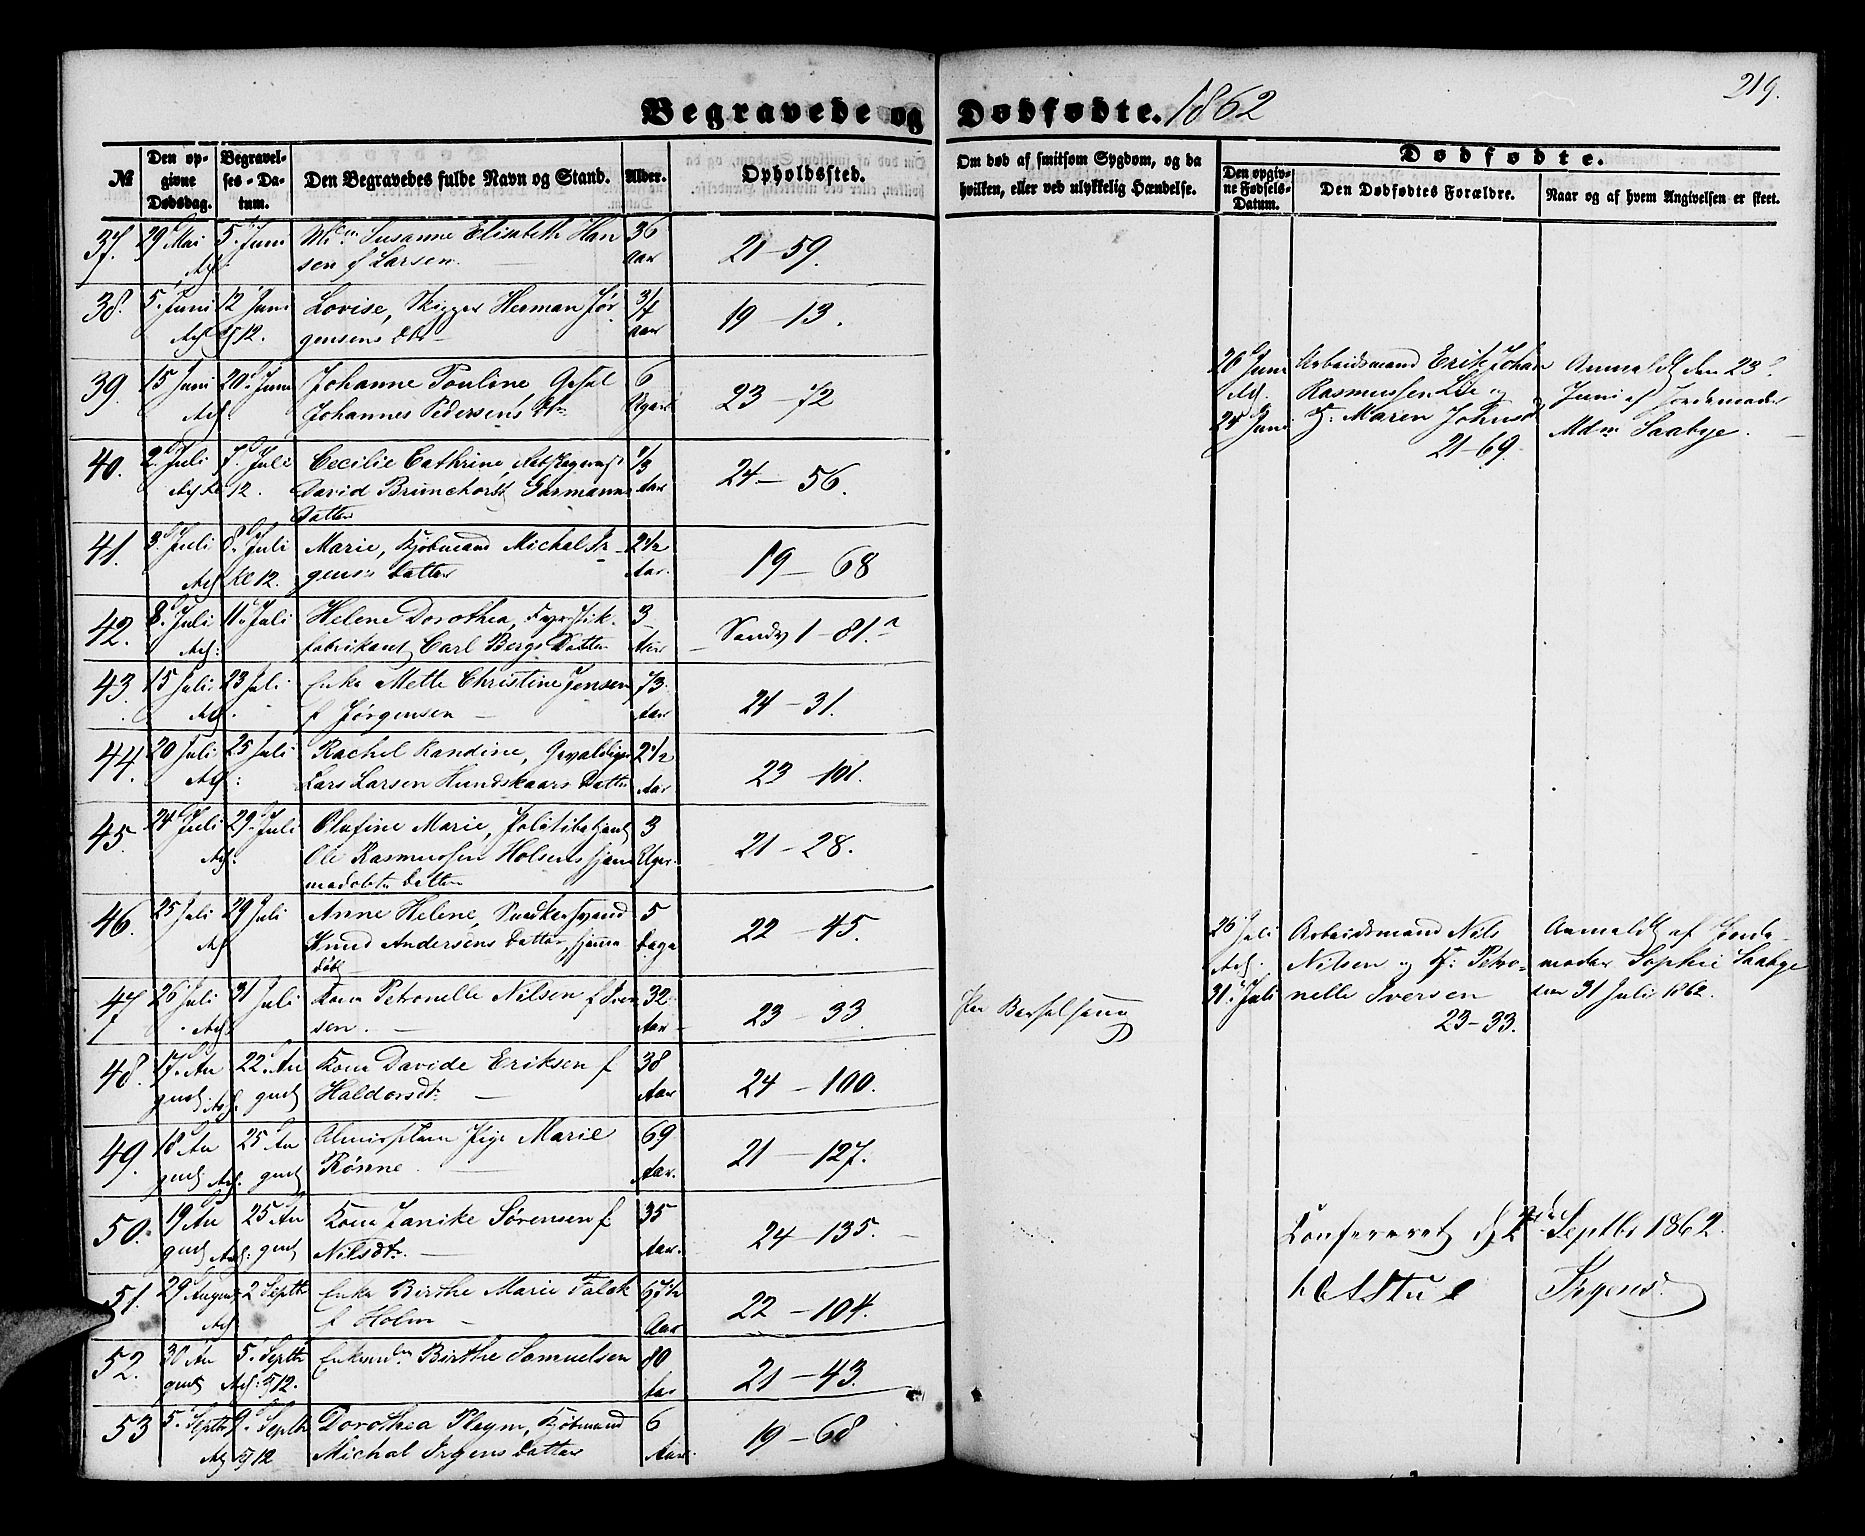 Begravede og Dødfødte. 1862
219.
№
Den opgivne Dødsdag.
Begravelses-Datum.
Den Begravedes fulde Navn og Stand.
Alder.
Opholdssted.
Om død af smitsom Sygdom, og da
hvilken, eller ved ulykkelig Hændelse.
Dødfødte.
Den opgivne Fødsels-Datum.
Den Dødfødtes Forældre.
Naar og af hvem Angivelsen er skeet.
37. 29 Mai 5. Juni Susanne Elisabeth Han 36
sen f Larsen. Aar 21-59.
38. 5. Juni 12 Juni Lovise, Skipper Herman Jør 3/4
12. gensens Dtr Aar 19-13.
39. 15 Juni 20 Juni Johanne Pouline, 6
Johannes Pedersens Dtr 23-72
40. 2 Juli 7. Juli Cecilie Cathrine,
12. David Brunchorst Garmanns Aar 24-56.
Datter
41. 3. Juli 8. Juli Marie, Kjøbmand Michal Ir 2 1/2
Kl 12. gens Datter Aar. 19-68
42. 8. Juli 11. Juli Helene Dorothea, Fyrstik- 3
fabrikant Carl Bergs Datter Aar Sandv 1-81.a
43. 15 Juli 23 Juli Enke Mette Christine Jensen 73
f Jørgensen Aar 24-31.
44. 20 Juli 25 Juli Rachel Randine, Gevaldiger 2 1/2
Lars Larsen Hundskaars Datter Aar 23-101.
45. 24 Juli 29. Juli Olufine Marie, Politibetjent 3
Ole Rasmussen Holsens hjem Uger 21-28.
medøbte Datter
46. 25 Juli 29 Juli Anne Helene, 5
Knud Andersens Datter, hjemme Dage 22-45.
døbt
47. 26 Juli 31 Juli Kone Petronelle Nilsen f Iver 32
sen. Aar 23-33.
Barselseng
48. 17. Au 22. Au Kone Davide Eriksen f 38
gust gust Haldorsdt: Aar 24-100.
49. 18 Au 25 Au Almislem Pige Marie 69
gust gust Rönne. Aar. 21-127.
50. 19 Au 25 Au Kone Janike Sörensen f 35
gust gust Nilsdtr. Aar. 24-135.
51. 29 August 2 Septbr Enke Birthe Marie Falck 67 1/2
f Holm Aar 22-104.
52. 30 Au 5. Septbr Birthe Samuelsen 80
gust 12. Aar 21-43.
53 5. Septbr 9. Septbr Dorothea Pleym, Kjøbmand 6
12 Michal Irgens Datter Aar. 19-68
20 Juni Arbeidsmand Erik Johan Anmeldt den 23.
Rasmussen Lie og Juni af Jordemoder
24 Juni H: Maren Johnsd Mdm Saabye.
21-69.
26 Juli Arbeidsmand Nils Anmeldt af Jorde-
Nilsen og H: Petro- moder Sophie Saabye
31. Juli nelle Iversen den 31 Juli 1862.
23-33.
Confereret d 2den Septbr 1862.
Irgens.